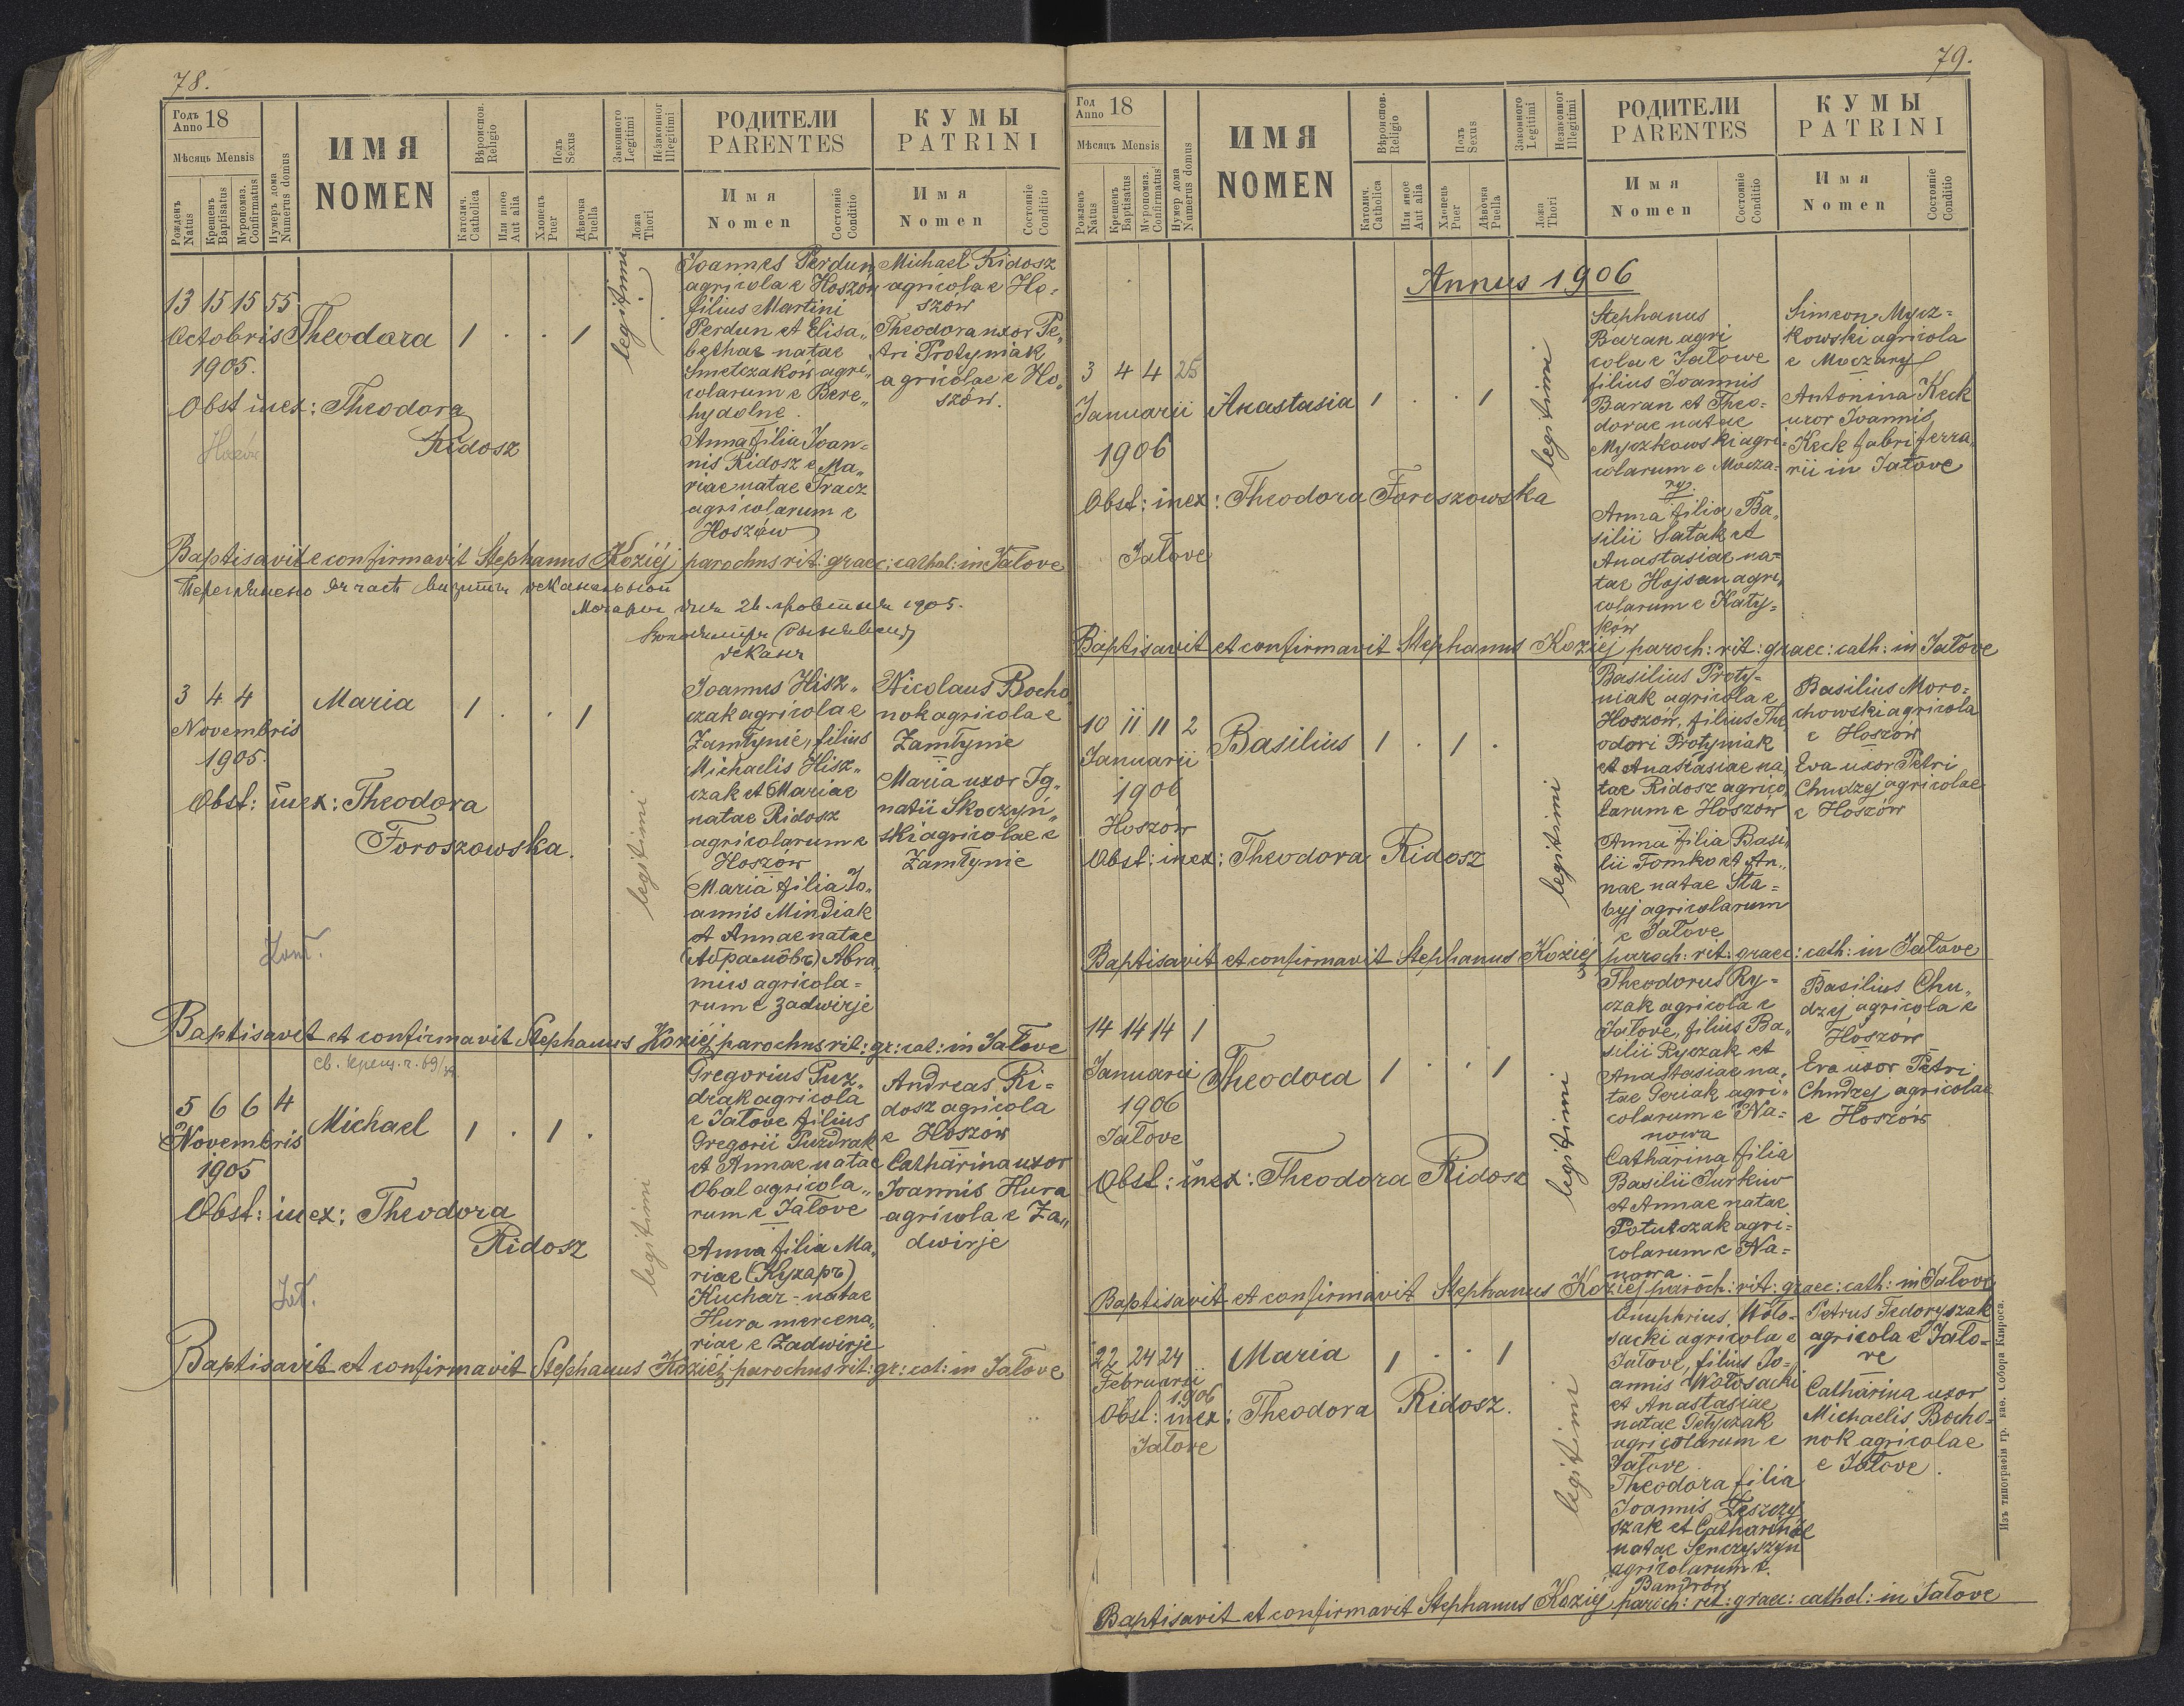 78.
Годъ Anno 18
Мѣсяць Mensis
Рожденъ Natus
Крещенъ Baptisatus
Муропомаз. Confirmatus
Нумеръ дома Numerus domus
ИМЯ
NOMEN
Вѣроиспов. Religio
Католич. Catholica
Или иное Aut alia
Полъ Sexus
Хлопецъ Puer
Дѣвочка Puella
Законного Legitimi
Незаконног Illegitimi
Ложа Thori
РОДИТЕЛИ
PARENTES
Имя
Nomen
Состояніе Conditio
КУМЫ
PATRINI
Имя
Nomen
Состояніе Conditio
13 15 15 55
Octobris Theodora 1 . . 1
1905.
Obst inex: Theodora
Ridosz
legitimi
Joannes Perdun
agricola e Hoszów
filius Martini
Perdun et Elisa„
bethae natae
Smetczaków agri„
colarum e Bere„
hydolne.
Anna filia Joan=
nis Ridosz e Ma„
riae natae Tracz
agricolarum e
Hoszów
Michael Ridosz
agricola e Ho=
szów
Theodora uxor Pe„
tri Protyniak
agricolae e Ho„
szów.
Baptisavit e confirmavit Stephanus Koziej parochus rit: graec: cathol: in Jałove
дня 26. 1905.
деканъ
3 4 4 Maria 1 . . 1
Novembris
1905.
Obst: inex: Theodora
Foroszowska.
legitimi
Joannes Hisz„
czak agricola e
Zamłynie, filius
Michaelis Hisz„
czak et Mariae
natae Ridosz
agricolarum e
Hoszów
Maria filia Jo„
annis Mindiak
et Annae natae
(Абрамôвъ) Abra„
miw agricola=
rum e Zadwirje
Nicolaus Bocho
nok agricola e
Zamłynie
Maria uxor Ig„
natii Skoczyń„
ski agricolae e
Zamłynie
Baptisavit et confirmavit Stephanus Koziej parochus rit: gr: cat: in Jałove
5 6 6 4
Novembris Michael 1 . 1 .
1905
Obst: inex: Theodora
Ridosz
legitimi
Gregorius Puz„
drak agricola
e Jałove filius
Gregorii Puzdrak
et Annae natae
Obal agricola„
rum e Jałove
Anna filia Ma„
riae (Кухаръ)
Kuchar - natae
Hura mercena„
riae e Zadwirje
Andreas Ri=
dosz agricola
e Hoszow
Catharina uxor
Joannis Hura
agricola e Za„
dwirje
Baptisavit et confirmavit Stephanus Koziej parochus rit: gr: cat: in Jałove
79.
Год Anno 18
Мѣсяць Mensis
Рожденъ Natus
Крещенъ Baptisatus
Муропомаз. Confirmatus
Нумер дома Numerus domus
ИМЯ
NOMEN
Вѣроиспов. Religio
Католич. Catholica
Или иное Aut alia
Полъ Sexus
Хлопець Puer
Дѣвочка Puella
Законного Legitimi
Незаконног Illegitimi
Ложа Thori
РОДИТЕЛИ
PARENTES
Имя
Nomen
Состояніе Conditio
КУМЫ
PATRINI
Имя
Nomen
Состояніе Conditio
Annus 1906
3 4 4 25
Januarii Anastasia 1 . . 1
1906
Obst: inex: Theodora Foroszowska
Jałove
legitimi
Stephanus
Baran agri
cola e Jałowe
filius Joannis
Baran et Theo=
dorae natae
Myszkowski agri=
colarum e Mocza=
ry.
Anna filia Ba„
silii Satak et
Anastasiae na=
tae Hojsan agri„
colarum e Katy=
ków
Simeon Mycz=
kowski agricola
e Moczary
Antonina Keck
uxor Joannis
Keck fabri ferra„
rii in Jałove
Baptisavit et confirmavit Stephanus Koziej paroch: rit: graec: cath: in Jałove
10 11 11 2
Januarii Basilius 1 . 1 .
1906
Hoszów
Obst: inex: Theodora Ridosz
legitimi
Basilius Proty=
niak agricola e
Hoszów, filius The
odori Protyniak
et Anastasiae na„
tae Ridosz agrico„
larum e Hoszów
Anna filia Basi„
lii Fomko et An„
nae natae Sta=
byj agricolarum
e Jałove
Basilius Moro=
chowski agricola
e Hoszów
Eva uxor Petri
Chudzej agricolae
e Hoszów
Baptisavit et confirmavit Stephanus Koziej paroch: rit: graec: cath: in Jałove
14 14 14 1
Januarii Theodora 1 . . 1
1906
Jałove
Obst: inex: Theodora Ridosz
legitimi
Theodorus Ry=
czak agricola e
Jałove, filius Ba„
silii Ryczak et
Anastasiae na„
tae Geriak agri„
colarum e Na=
nowa
Catharina filia
Basilii Jurkiw
et Annae natae
Potutczak agri=
colarum e Na=
nowa.
Basilius Chu„
dzej agricola e
Hoszów
Eva uxor Petri
Chudzej agricolae
e Hoszów
Baptisavit et confirmavit Stephanus Koziej paroch: rit: graec: cath: in Jałove
22 24 24 Maria 1 . . 1
Februarii
1906
Obst: inex: Theodora Ridosz.
Jałove
legitimi
Onuphrius Woło=
sacki agricola e
Jałove, filius Jo=
annis Wołosacki
et Anastasiae
natae Petyczak
agricolarum e
Jałove.
Theodora filia
Joannis Leszczy
szak et Catharinae
natae Senczyszyn
agricolarum e.
Bandrów
Petrus Fedoryszak
agricola e Jało=
ve
Catharina uxor
Michaelis Bocho=
nok agricolae
e Jałove.
Baptisavit et confirmavit Stephanus Koziej paroch: rit: graec: cathol: in Jałove
Изъ типографіи гр. каѳ. Собора Клироса.